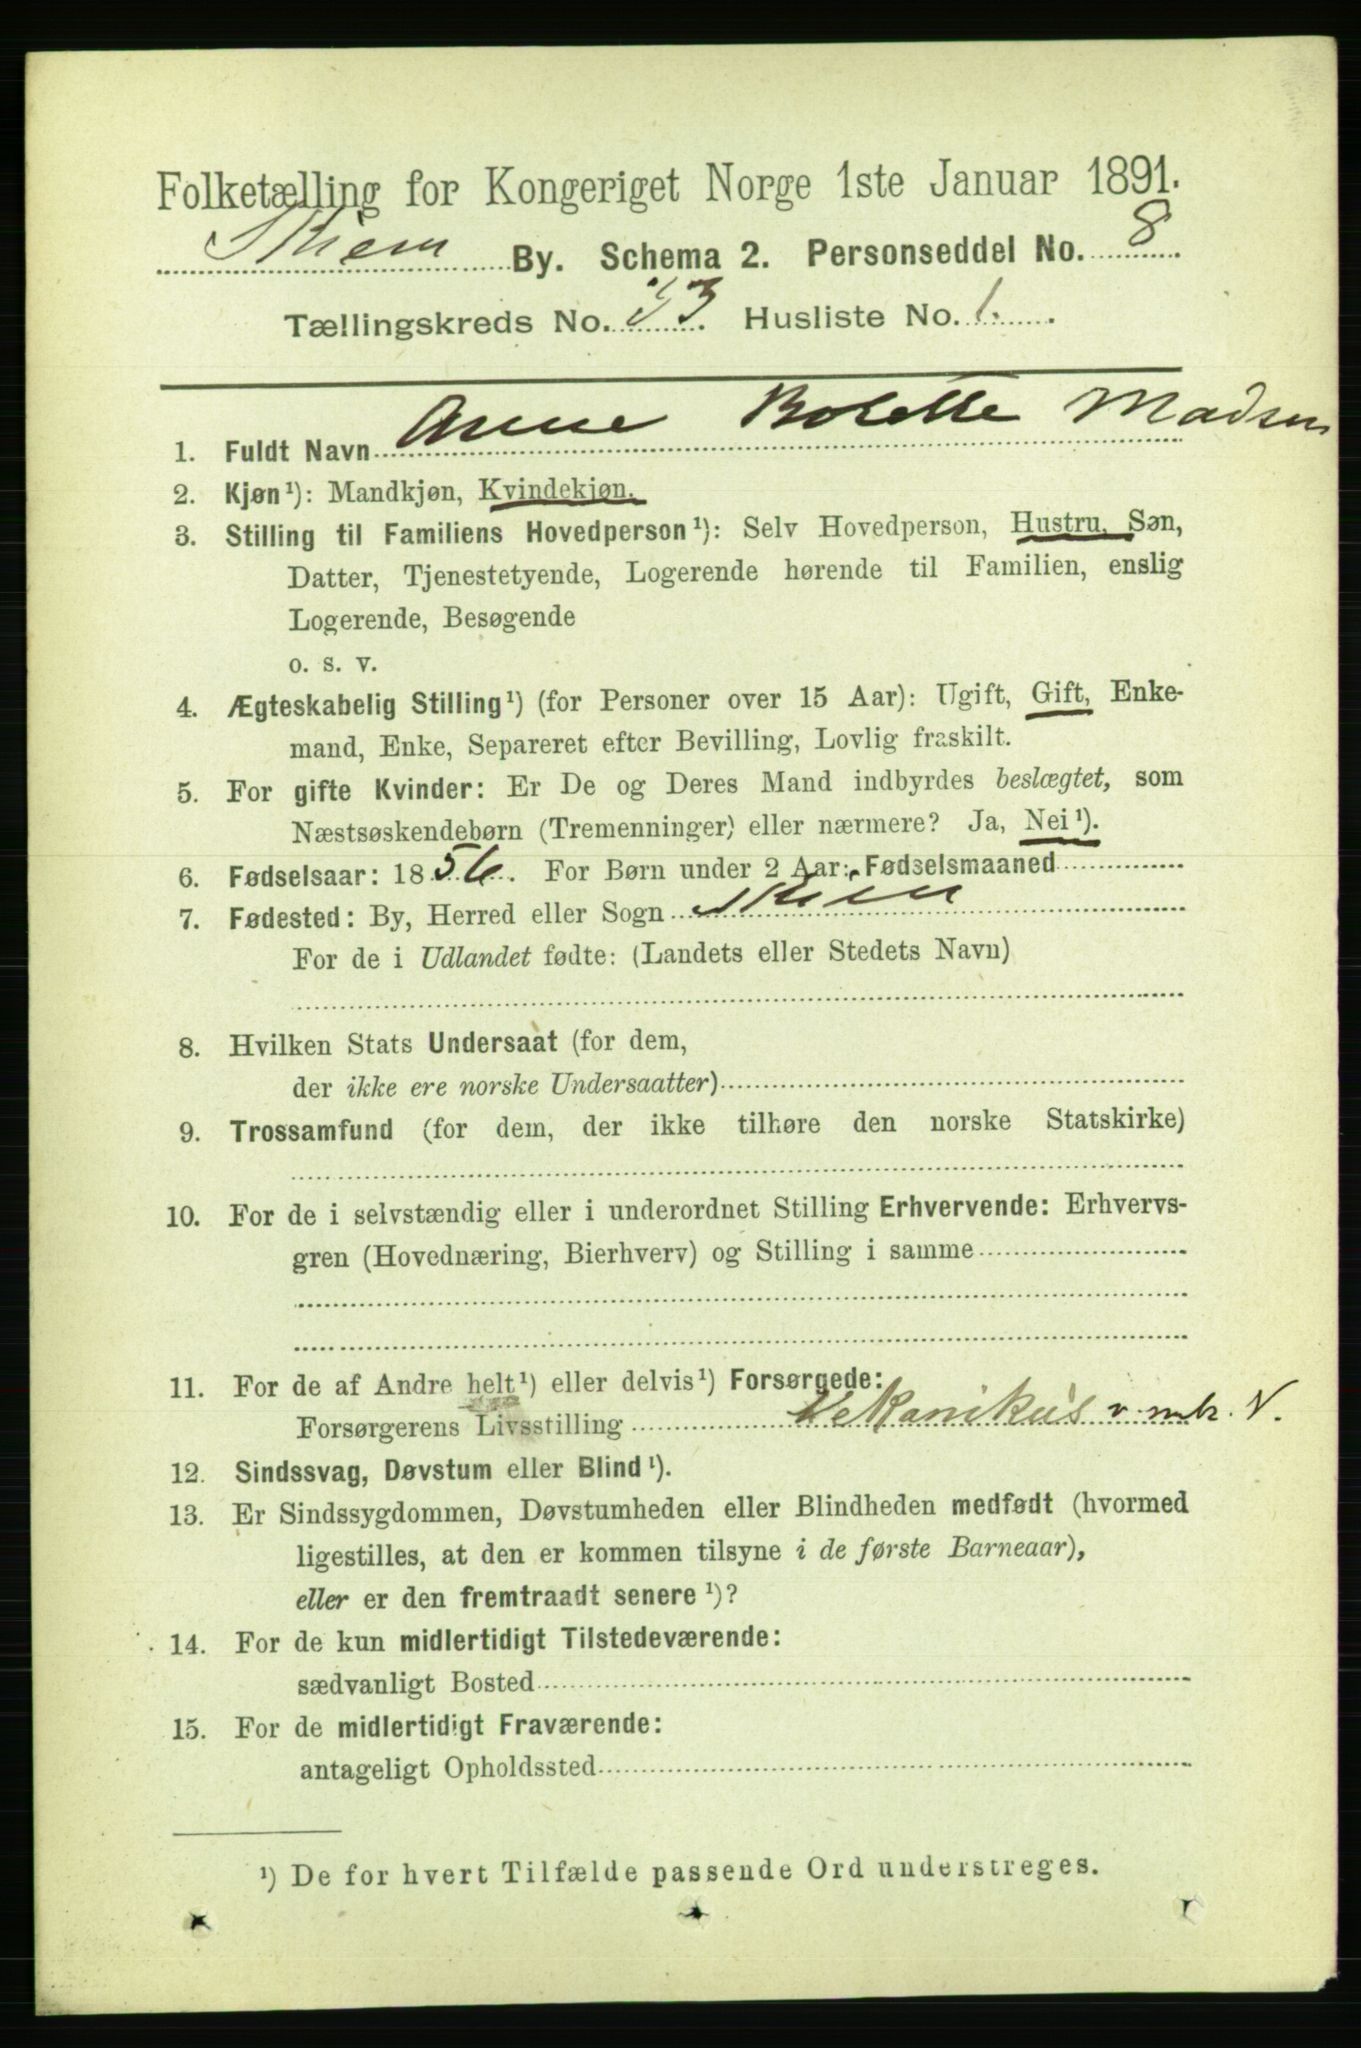 Folketælling for Kongeriget Norge 1ste Januar 1891.
Skien By. Schema 2. Personseddel No. 8
Tællingskreds No. 33. Husliste No. 1.
1. Fuldt Navn Anne Bolette Madsen
2. Kjøn¹): Mandkjøn, Kvindekjøn.
3. Stilling til Familiens Hovedperson¹): Selv Hovedperson, Hustru, Søn,
Datter, Tjenestetyende, Logerende hørende til Familien, enslig
Logerende, Besøgende
o. s. v.
4. Ægteskabelig Stilling¹) (for Personer over 15 Aar): Ugift, Gift, Enke-
mand, Enke, Separeret efter Bevilling, Lovlig fraskilt.
5. For gifte Kvinder: Er De og Deres Mand indbyrdes beslægtet, som
Næstsøskendebørn (Tremenninger) eller nærmere? Ja, Nei¹).
6. Fødselsaar: 1856. For Børn under 2 Aar: Fødselsmaaned
7. Fødested: By, Herred eller Sogn Skien
For de i Udlandet fødte: (Landets eller Stedets Navn)
8. Hvilken Stats Undersaat (for dem,
der ikke ere norske Undersaatter)
9. Trossamfund (for dem, der ikke tilhøre den norske Statskirke)
10. For de i selvstændig eller i underordnet Stilling Erhvervende: Erhvervs-
gren (Hovednæring, Bierhverv) og Stilling i samme
11. For de af Andre helt¹) eller delvis¹) Forsørgede:
Forsørgerens Livsstilling Mekanikus v. mk. V.
12. Sindssvag, Døvstum eller Blind¹).
13. Er Sindssygdommen, Døvstumheden eller Blindheden medfødt (hvormed
ligestilles, at den er kommen tilsyne i de første Barneaar),
eller er den fremtraadt senere¹)?
14. For de kun midlertidigt Tilstedeværende:
sædvanligt Bosted
15. For de midlertidigt Fraværende:
antageligt Opholdssted
¹) De for hvert Tilfælde passende Ord understreges.